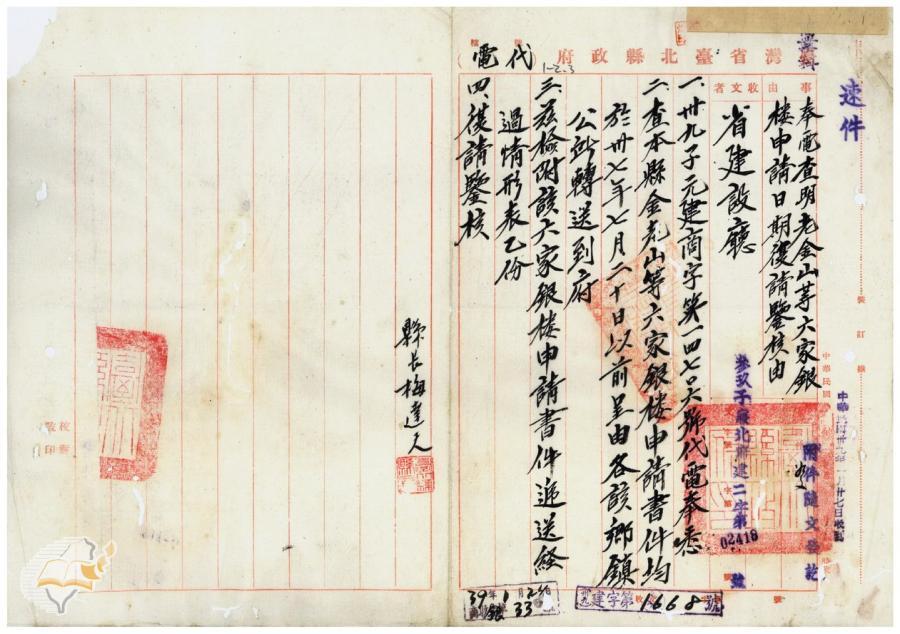 速件
臺灣省臺北縣政府代電
事由
奉電查明老金山等六家銀
樓申請日期復請鑒核由
收文者
省建設廳
附件隨文登記
參玖子 北府建二字第
02418
號
一、卅九子元建商字第一四七〇六號代電奉悉
二、查本縣金老山等六家銀樓申請書件均
於卅七年七月二十日以前呈由各該鄉鎮
公所轉送到府
三、茲檢附該六家銀樓申請書件遞送經
過情形表乙份
四、復請鑒核
縣長梅達夫
1-2.3
建字第1668號
39年1月
33
裝
訂
線
中華民國